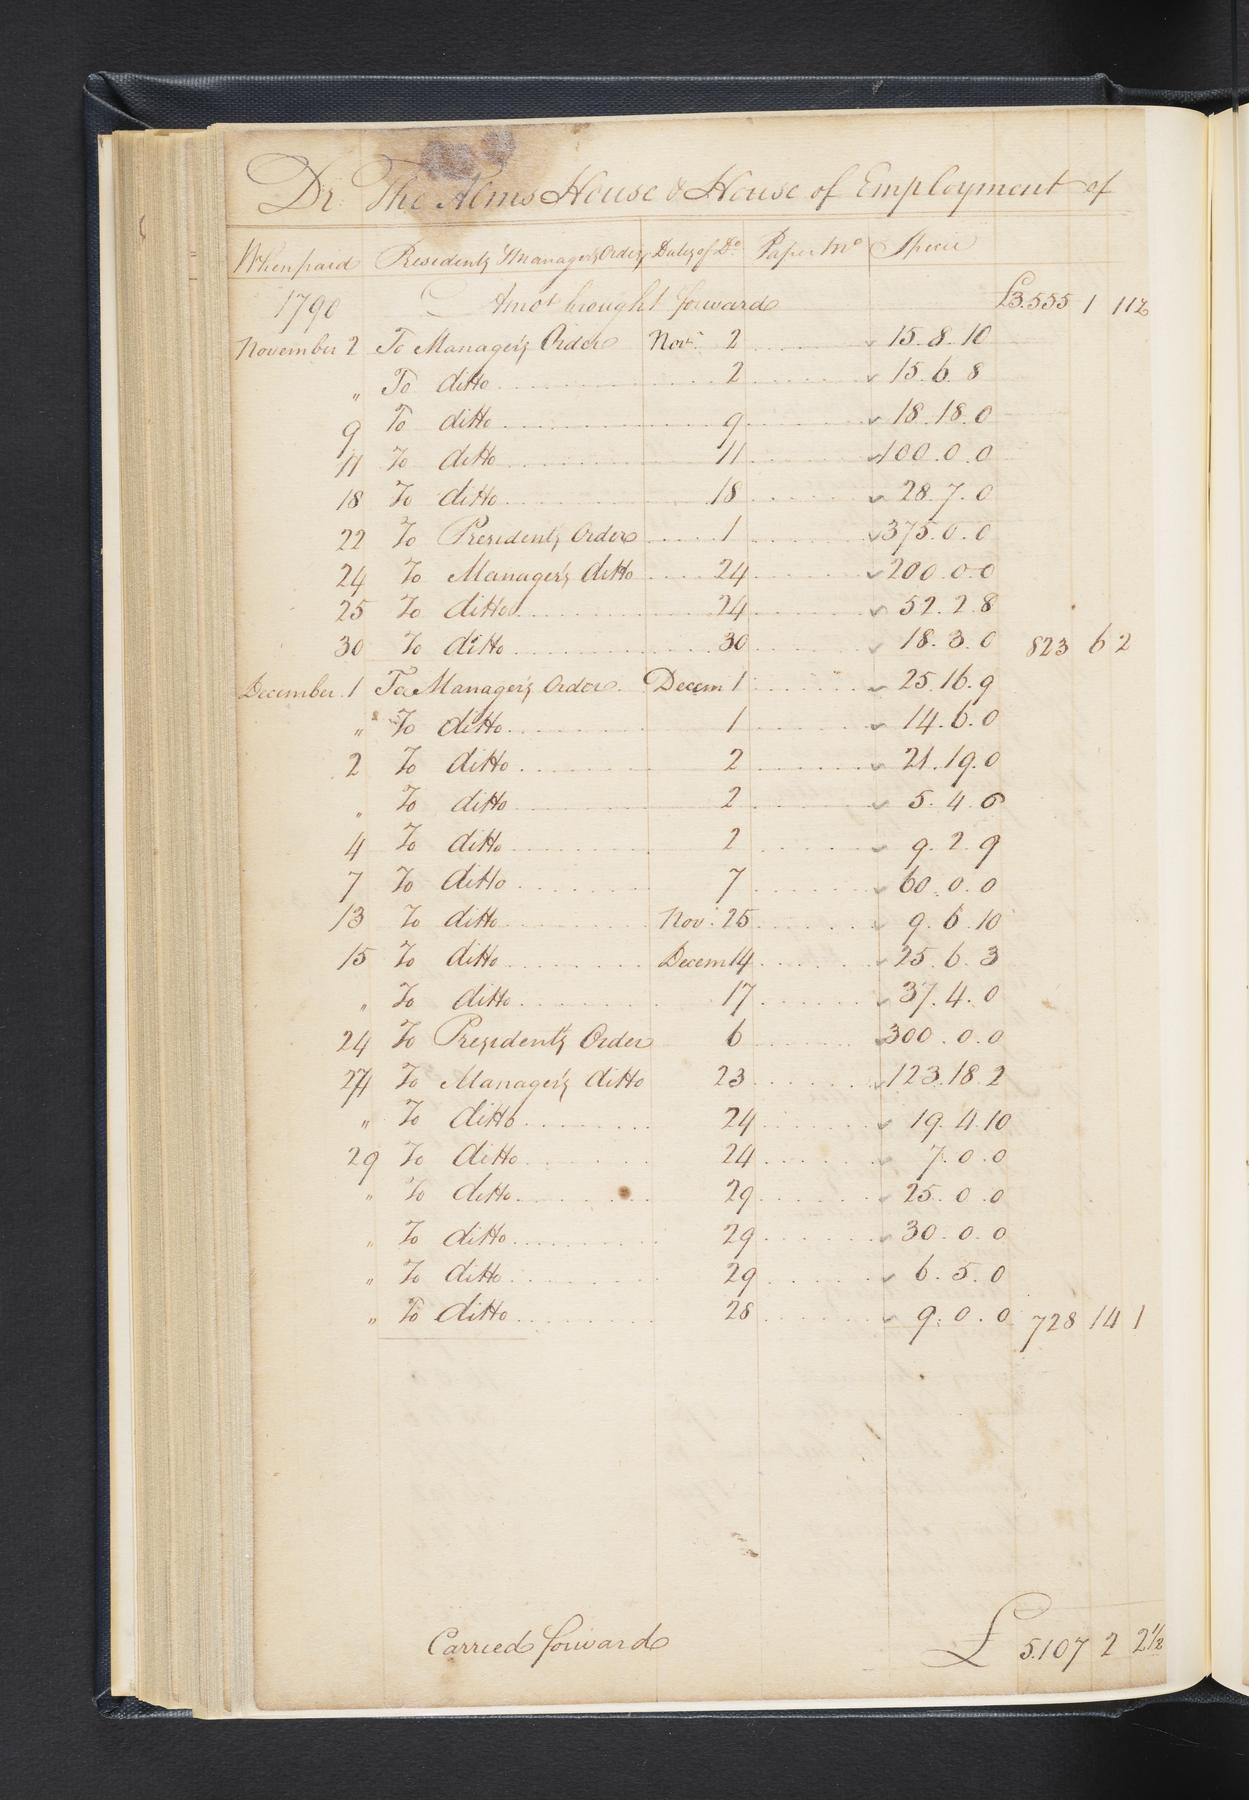 Dr. The Alms House & House of Employment of
When paid Presidents & Managers Order Dates of Do. Paper Mo Specie
1790 Amot brought forward £3.555 1 11½
November 2 To Manager's Order Nov: 2 15.8.10
" To ditto 2 15.6.8
9 To ditto 9 18.18.0
11 To ditto 11 100.0.0
18 To ditto 18 28.7.0
22 To President's Order 1 375.0.0
24 To Manager's ditto 24 200.0.0
25 To ditto 24 52.2.8
30 To ditto 30 18.3.0 823 6 2
December 1 To Manager's Order Decem 1 25.16.9
" To ditto 1 14.6.0
2 To ditto 2 21.19.0
" To ditto 2 5.4.6
4 To ditto 2 9.2.9
7 To ditto 7 60.0.0
13 To ditto Nov: 25 9.6.10
15 To ditto Decem 14 25.6.3
" To ditto 17 37.4.0
24 To President's Order 6 300.0.0
27 To Manager's ditto 23 123.18.2
" To ditto 24 19.4.10
29 To ditto 24 7.0.0
" To ditto 29 25.0.0
" To ditto 29 30.0.0
" To ditto 29 6.5.0
" To ditto 28 9.0.0 728 14 1
Carried forward £ 5.107 2 2½